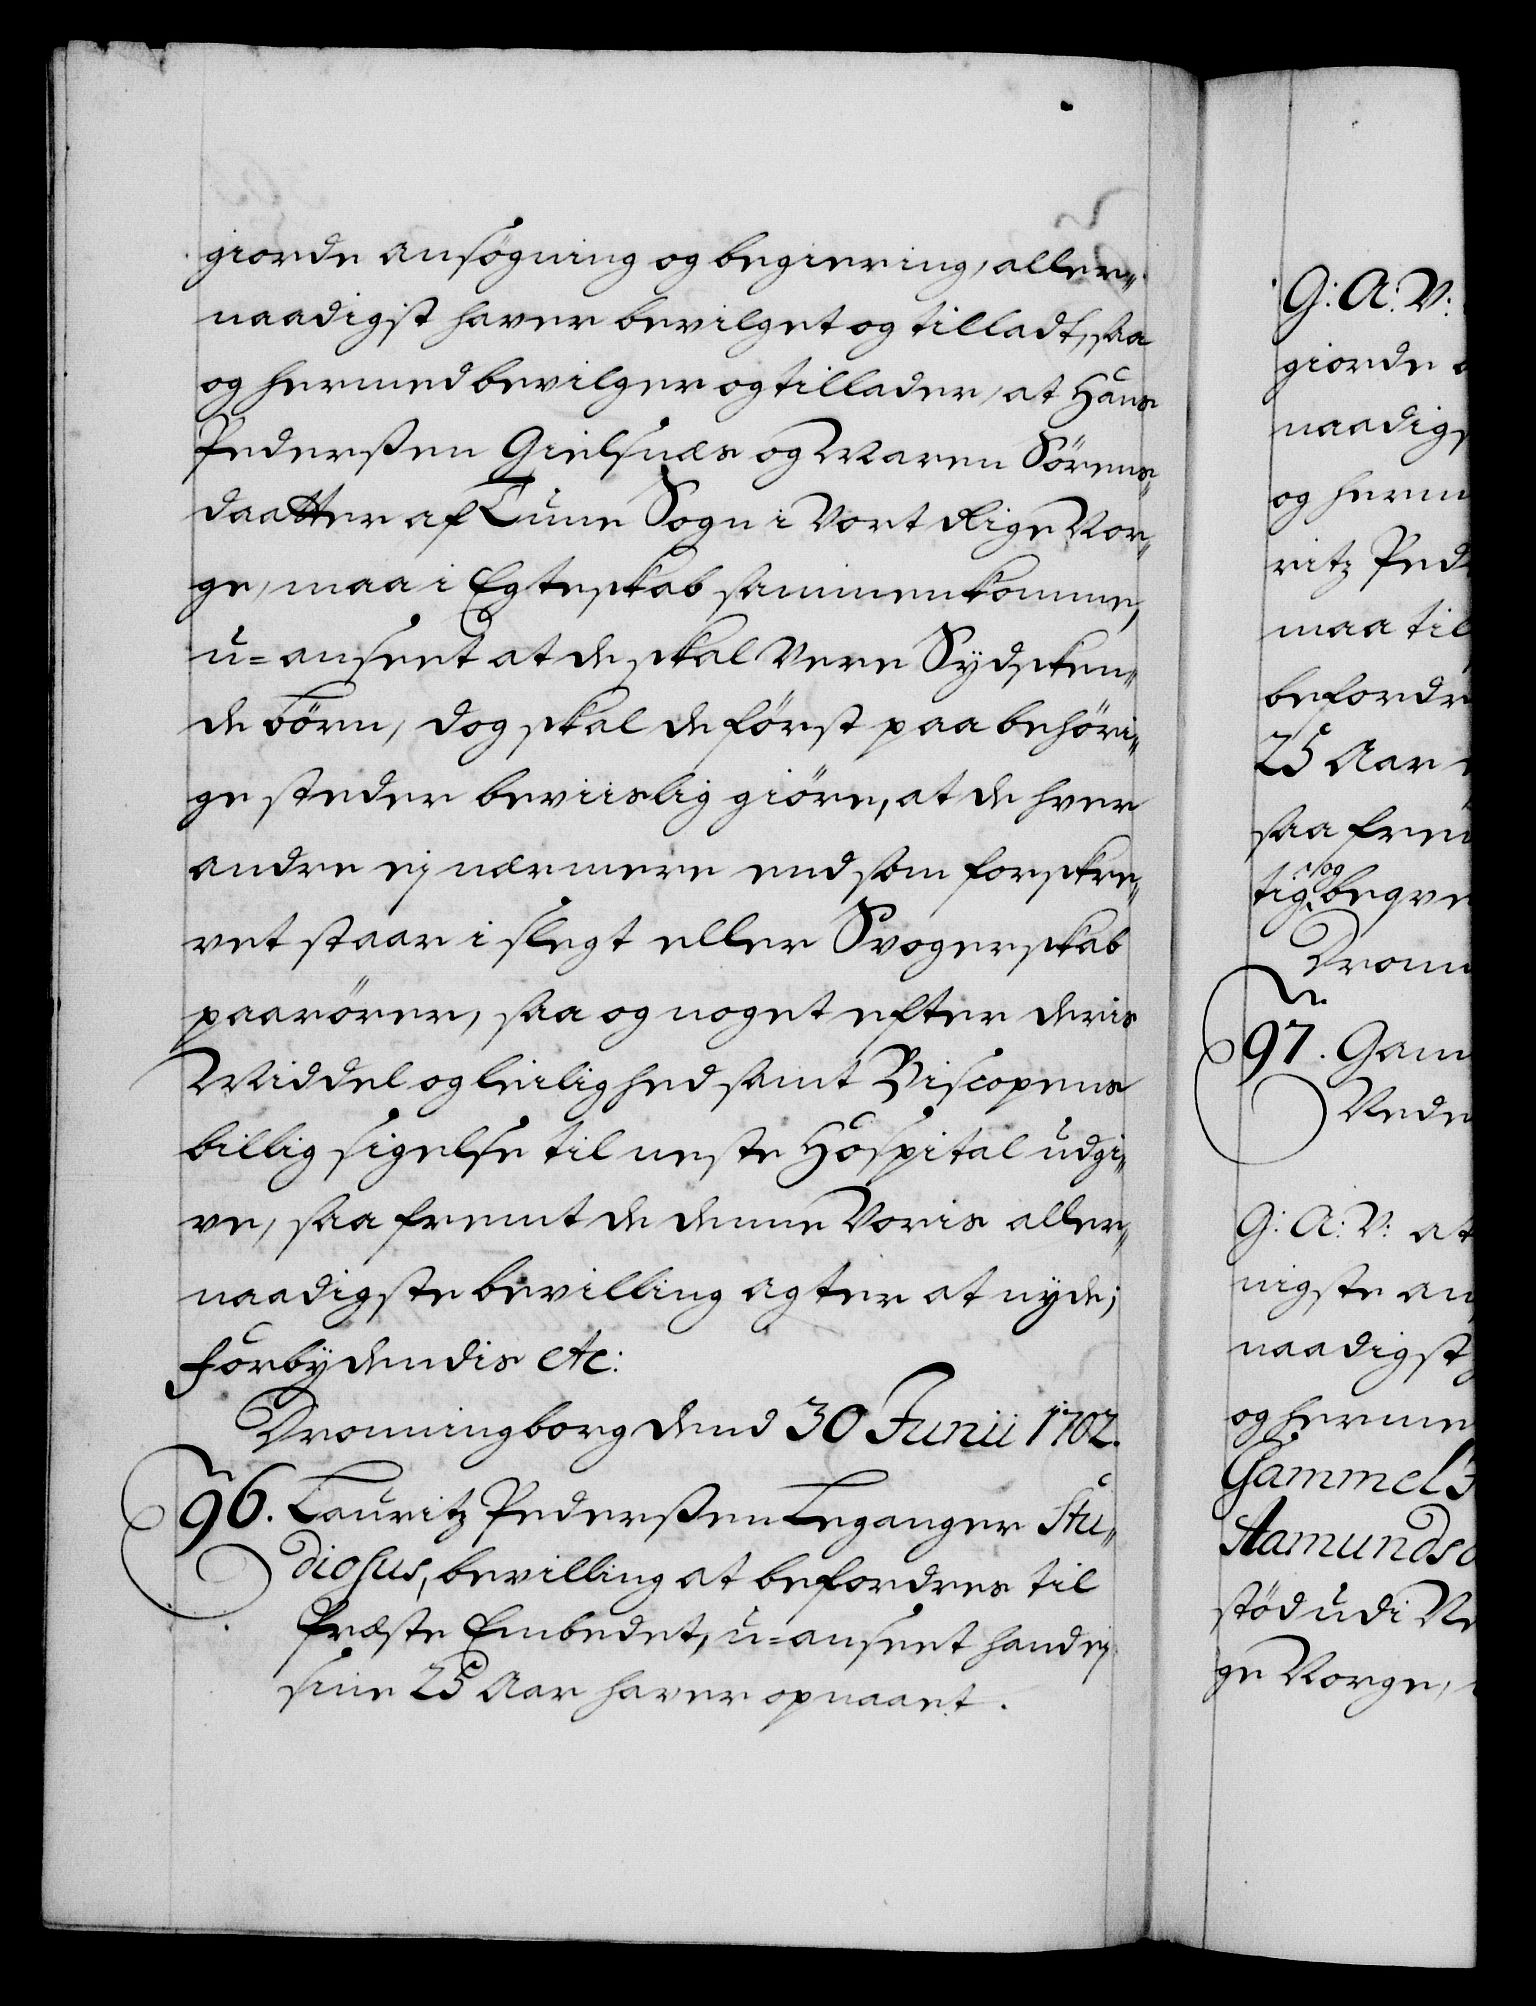 giorde ansögning og begiering, aller„
naadigst haver bevilget og tilladt, saa
og hermed bevilger og tillader, at Hans
Pederßen Gielsnes og Maren Sörens„
daatter af Tune Sogn i Vort Rige Nor„
ge, maa i Egteskab sammenkomme,
u=anseet at de skal Vere Sydsken„
de börn, dog skal de först paa behöri„
ge steder beviislig giöre, at de hver
andre ej nærmere end som forskre„
vet staar i slegt eller Svogerskab
paarörer, saa og noget efter deris
Middel og leilighed samt Biscopens
billig sigelse til neste Hospital udgi„
ve, saa fremt de denne Voris aller„
naadigste bevilling agter at nyde;
Forbydendis etc:
Dronningborg dend 30 Junii 1702.
96. Lauritz Pederßen Leganger Stu„
diosus, bevilling at befordres til
Præste Embedet, u=anseet hand ej
sine 25 Aar haver opnaaet.
G: A: V:
giorde
naadigs
og herm
ritz Ped
maa til
befordr
25 Aar
saa frem
tig og begve
Dronn
97. Gam
Vede
G: A: V: at
nigste an
naadigst
og herme
Gammel
Aamunds
stöd udi Ve
ge Norge,